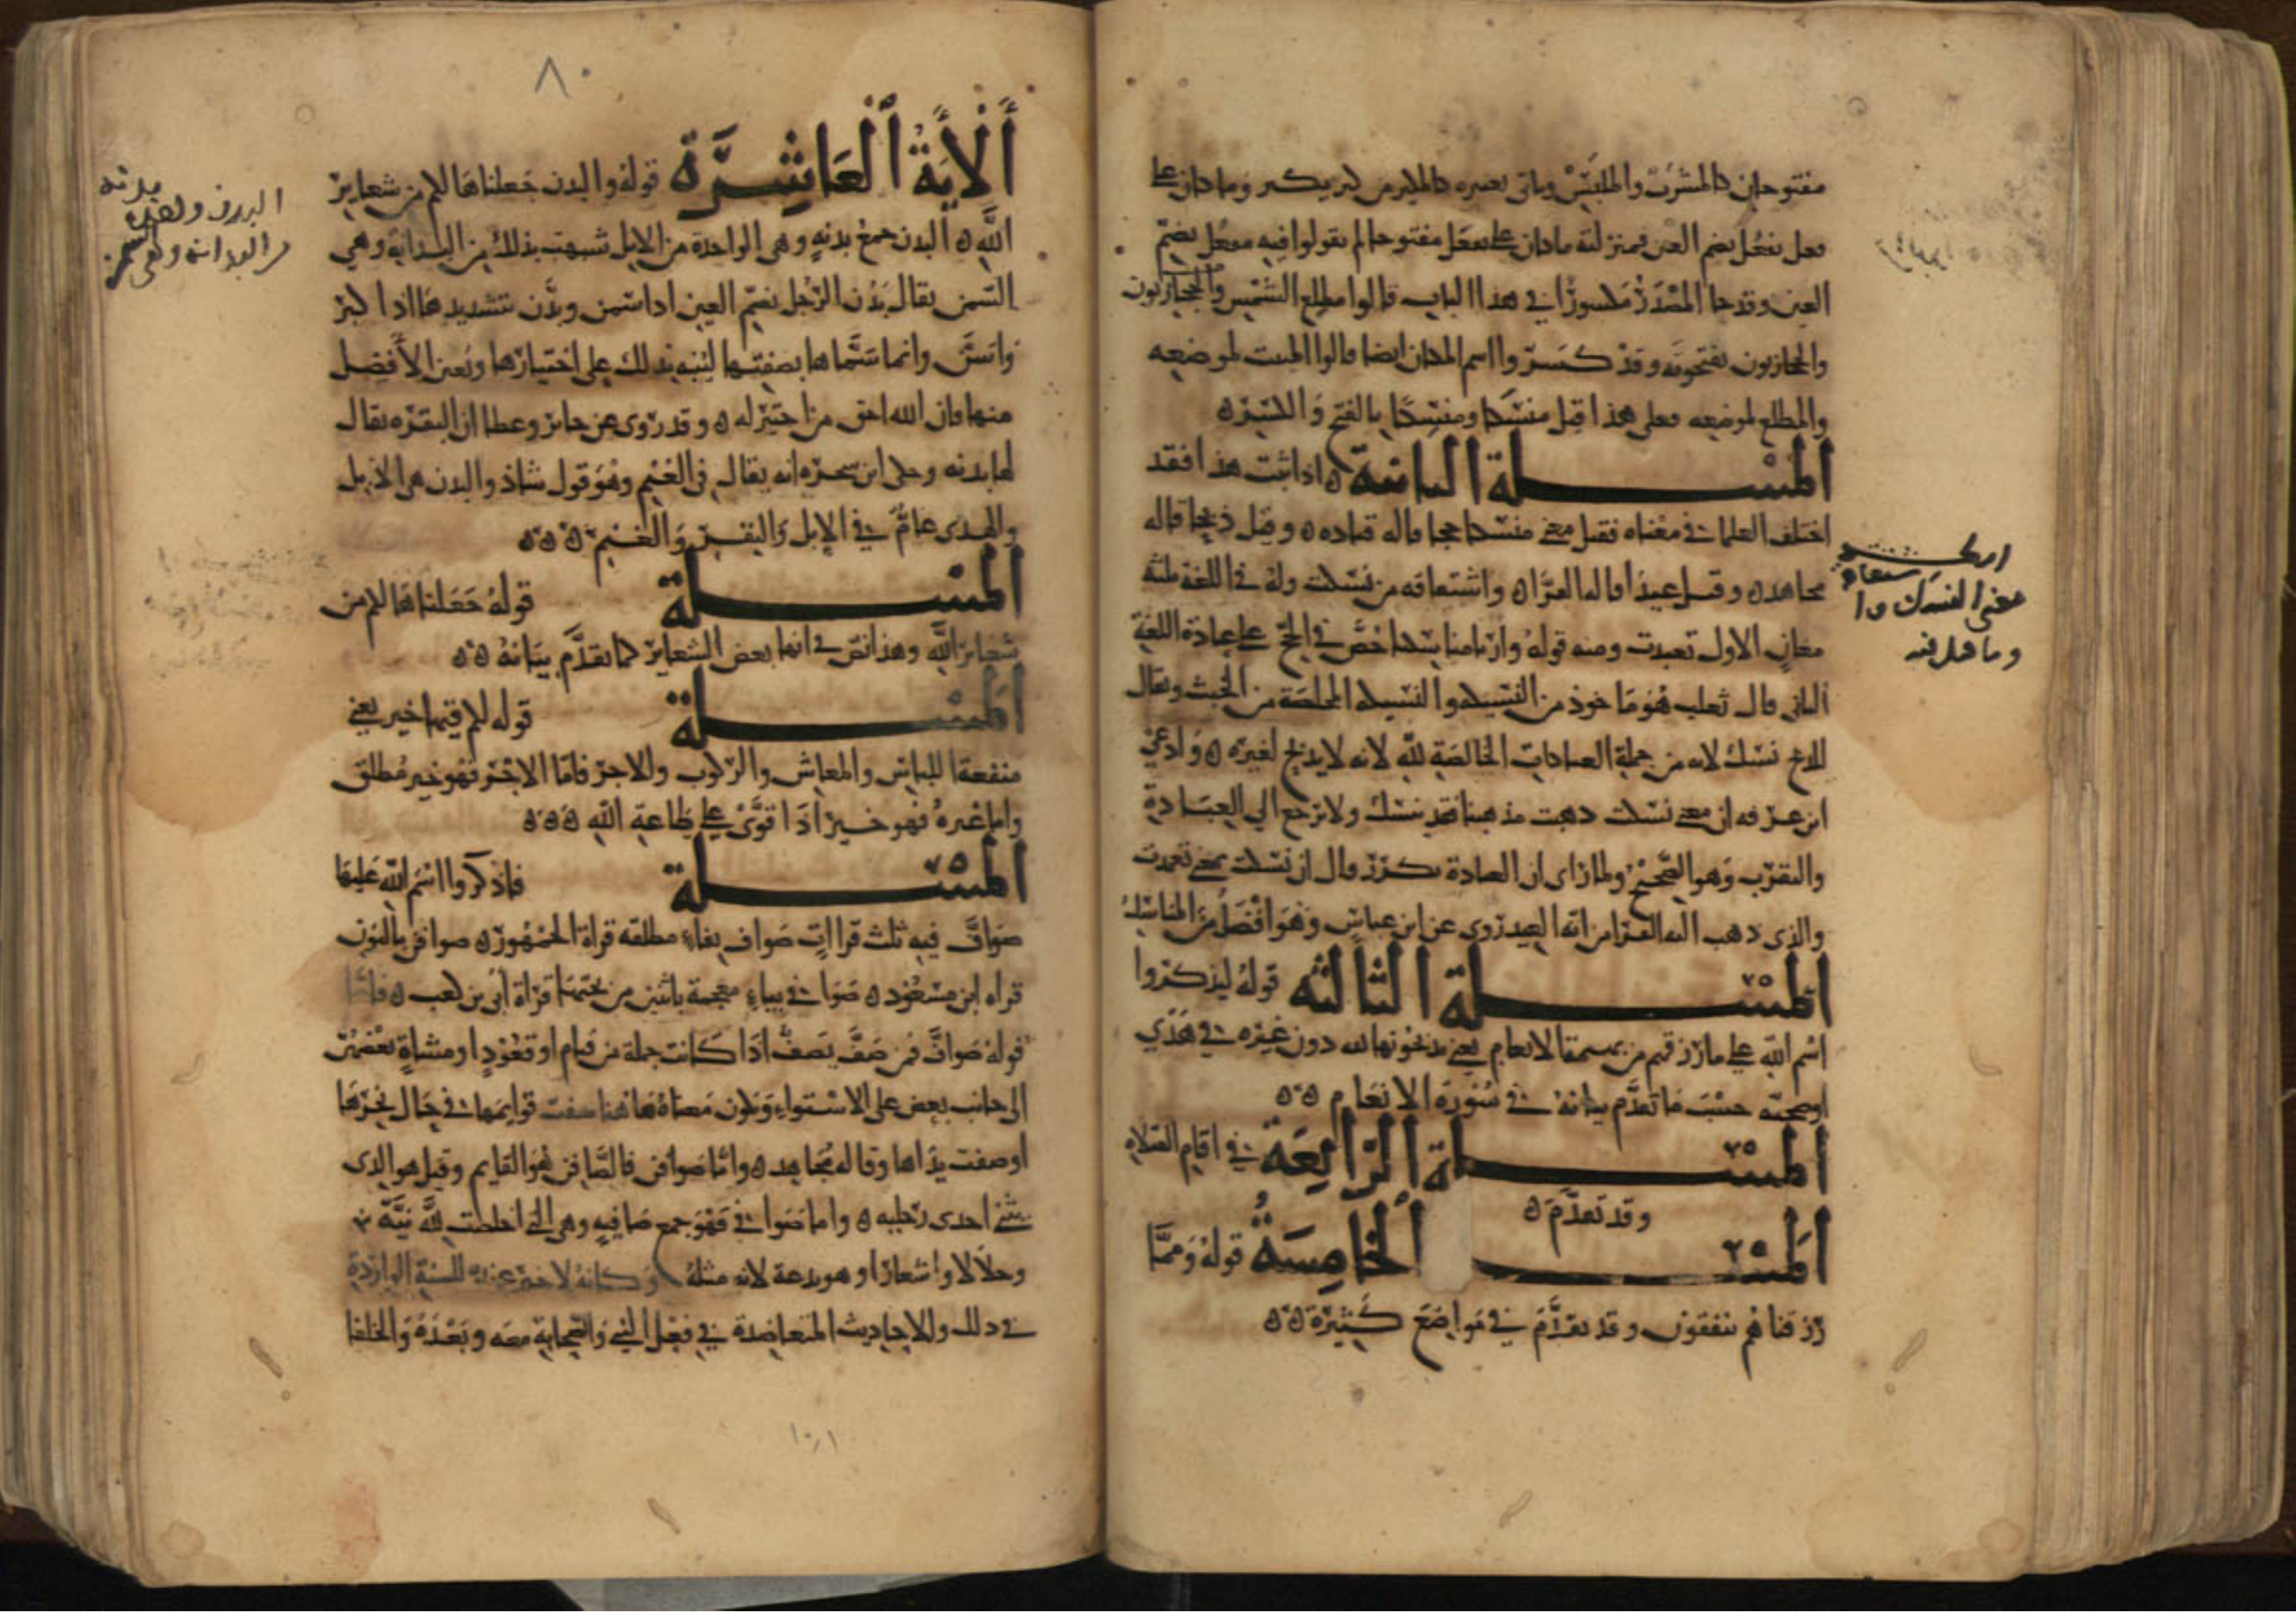 مفتوحان كالمشرب والملبس وياتى بعضه كالمكبر من كبر يكبر وما كان على
فعل يفعل بضم العين فبمنزلة ما كان على يفعل مفتوحا لم يقولوا فيه مفعل بضم
العين وقد جا المصدر مكسورا في هذا الباب قالوا مطلع الشمس والحجازيون
والحجازيون يفتحونه وقد كسروا اسم المكان ايضا قالوا المنبت لموضعه
والمطلع لموضعه فعلى هذا قيل منسكا ومنسكا بالفتح والكسر ه
المسلة الثانية ه اذا ثبت هذا فقد
اختلف العلما في معناه فقيل معنى منسكا حجا قاله قتاده ه وقيل ذبحا قاله
مجاهد ه وقيل عيدا قاله الفرا ه واشتقاقه من نسكت وله في اللغة ثلثة
معان الاول تعبدت ومنه قوله وارنا مناسكنا خص في الحج على عادة اللغة
الثانى قال ثعلب هو ماخوذ من النسيكه والنسيكه المخلصة من الخبث ويقال
للذبح نسك لانه من جملة العبادات الخالصة لله لانه لا يذبح لغيره ه وادعى
ابن عرفه ان معنى نسكت ذهبت مذهبا فقد نسك ولا ترجع الي العبادة
والتقرب وهو الصحيح ولما راى ان العبادة تكرر قال ان نسكت بمعنى تعهدت
والذى ذهب اليه الفرا من انه العيد روى عن ابن عباس وهو افضل من المناسك
المسلة الثالثه قوله ليذكروا
اسم الله على ما رزقهم من بهيمة الانعام يعنى يذبحونها لله دون غيره في هدي
اوضحيّه حسب ما تقدم بيانه في سورة الانعام ه ه
المسلة الرابعة في اقام الصلاه
وقد تقدم ه
المسـ الخامسة قوله ومما
رزقناهم ينفقون وقد تقدم في مواضع كثيرة ه ه
معنى النسك
وما قيل فيه
٨٠
ألاية العاشرة قوله والبدن جعلناها لكم من شعاير
الله ه البدن جمع بدنه وهى الواحدة من الابل شبهت بذلك من البدانة وهي
السمن يقال بدن الرجل بضم العين اذا سمن وبدن بتشديدها اذا كبر
واسن وانما سماها بصفتها لينبه بذلك على اختيارها وتعين الافضل
منها فان الله احق من اختير له ه وقد روى عن جابر وعطا ان البقره يقال
لها بدنه وحكى ابن شجره انه يقال في الغنم وهو قول شاذ والبدن هى الابل
والهدى عام في الابل والبقر والغنم ه ه ه
المسلة قوله جعلناها لكم من
شعاير الله وهذا نص في انها بعض الشعاير كما تقدم بيانه ه ه
المسلة قوله لكم فيها خير يعني
منفعة اللباس والمعاش والركوب والاجر فاما الاجر فهو خير مطلق
واما غيره فهو خير اذا قوى على طاعة الله ه ه ه
المسلة فاذكروا اسم الله عليها
صواف فيه ثلث قراات صواف بفاء مطلقه قراة الجمهور ه صوافن بالنون
قراه ابن مسعود ه صوافي بياء معجمة باثنين من تحتها قراة ابى بن كعب ه فاما
قوله صواف فمن صف يصف اذا كانت جملة من قيام او قعود او مشاة بعضهن
الى جانب بعض على الاستواء ويكون معناه هاهنا صفت قوايمها في حال نحرها
اوصفت يداها وقاله مجاهد ه واما صوافن فالصافن هو القايم وقيل هو الذى
يثنى احدى رجليه ه واما صوافي فهو جمع صافيه وهى التى اخلصت لله نية
وجلالا واشعارا وهو بدعة لانه مثله وكانه لا خبر عنده للسنة الواردة
في ذلك والاحاديث المتعاضدة في فعل النبى والصحابة معه وبعده والخلفا
١٠١